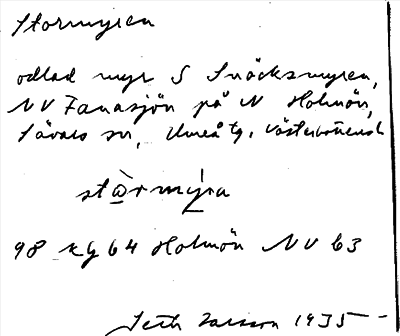 Stormyren
odlad myr S Snöcksmyren,
NV Fanasjön på N Holmön,
Sävars sn, Umeå tg, Västerbottens l
stårmýra
98 kg 64 Holmön NV 63
Seth Larsson 1935